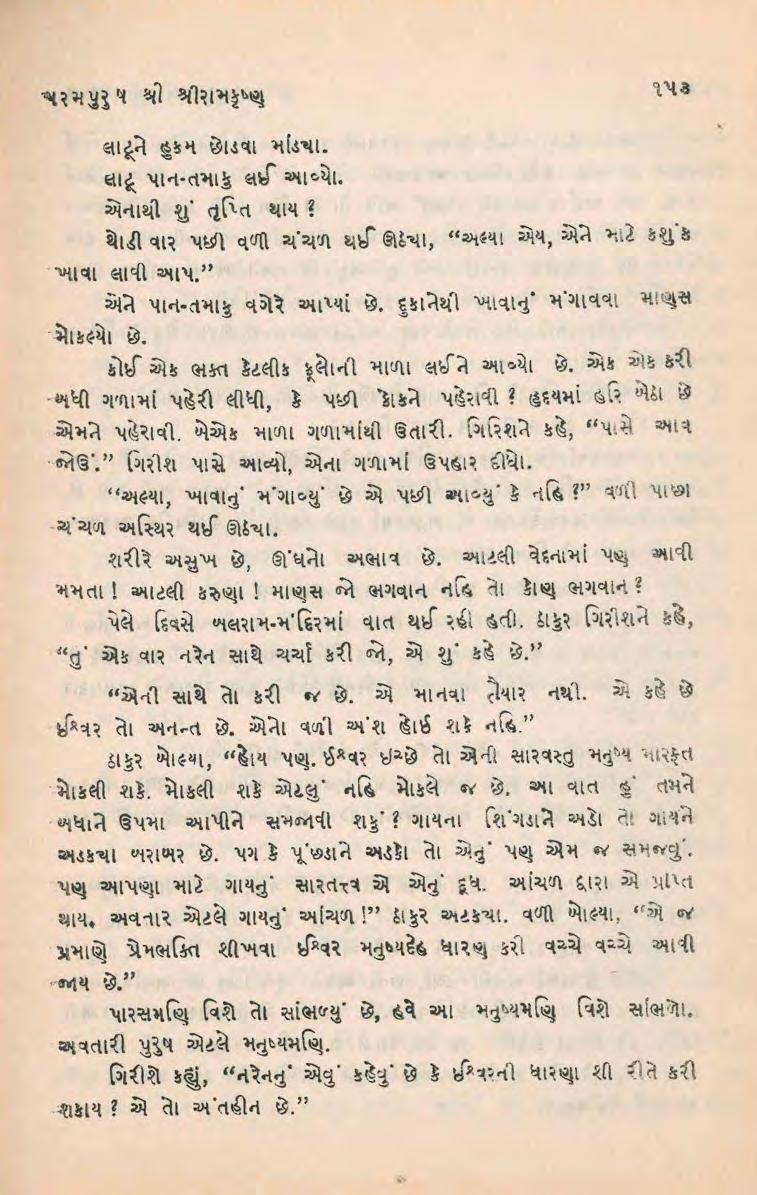 પરમપુરુષ શ્રી શ્રીરામકૃષ્ણ ૧૫૩
લાટૂને હુકમ છોડવા માંડ્યા.
લાટૂ પાન-તમાકુ લઈ આવ્યો.
એનાથી શું તૃપ્તિ થાય ?
થોડી વાર પછી વળી ચંચળ થઈ ઊઠ્યા, “અલ્યા એય, એને માટે કશુંક
ખાવા લાવી આપ.”
એને પાન-તમાકુ વગેરે આપ્યાં છે. દુકાનેથી ખાવાનું મંગાવવા માણસ
મોકલ્યો છે.
કોઈ એક ભક્ત કેટલીક ફૂલોની માળા લઈને આવ્યો છે. એક એક કરી
બધી ગળામાં પહેરી લીધી, કે પછી કોકને પહેરાવી ? હૃદયમાં હરિ બેઠા છે
એમને પહેરાવી. બેએક માળા ગળામાંથી ઉતારી. ગિરિશને કહે, “પાસે આવ
જોઉં.” ગિરીશ પાસે આવ્યો, એના ગળામાં ઉપહાર દીધો.
“અલ્યા, ખાવાનું મંગાવ્યું છે એ પછી આવ્યું કે નહિ ?” વળી પાછા
ચંચળ અસ્થિર થઈ ઊઠ્યા.
શરીરે અસુખ છે, ઊંઘનો અભાવ છે. આટલી વેદનામાં પણ આવી
મમતા ! આટલી કરુણા ! માણસ જો ભગવાન નહિ તો કોણ ભગવાન ?
પેલે દિવસે બલરામ-મંદિરમાં વાત થઈ રહી હતી. ઠાકુર ગિરીશને કહે,
“તું એક વાર નરેન સાથે ચર્ચા કરી જો, એ શું કહે છે.”
“એની સાથે તો કરી જ છે. એ માનવા તૈયાર નથી. એ કહે છે
ઈશ્વર તો અનન્ત છે. એનો વળી અંશ હોઈ શકે નહિ.”
ઠાકુર બોલ્યા, “હોય પણ. ઈશ્વર ઇચ્છે તો એની સારવસ્તુ મનુષ્ય મારફત
મોકલી શકે. મોકલી શકે એટલું નહિ મોકલે જ છે. આ વાત હું તમને
બધાને ઉપમા આપીને સમજાવી શકું ? ગાયના શિંગડાને અડો તો ગાયને
અડક્યા બરાબર છે. પગ કે પૂંછડાને અડકો તો એનું પણ એમ જ સમજવું.
પણ આપણા માટે ગાયનું સારતત્ત્વ એ એનું દૂધ. આંચળ દ્વારા એ પ્રાપ્ત
થાય. અવતાર એટલે ગાયનું આંચળ !” ઠાકુર અટક્યા. વળી બોલ્યા, “એ જ
પ્રમાણે પ્રેમભક્તિ શીખવા ઈશ્વર મનુષ્યદેહ ધારણ કરી વચ્ચે વચ્ચે આવી
જાય છે.”
પારસમણિ વિશે તો સાંભળ્યું છે, હવે આ મનુષ્યમણિ વિશે સાંભળો.
અવતારી પુરુષ એટલે મનુષ્યમણિ.
ગિરીશે કહ્યું, “નરેનનું એવું કહેવું છે કે ઈશ્વરની ધારણા શી રીતે કરી
શકાય ? એ તો અંતહીન છે.”